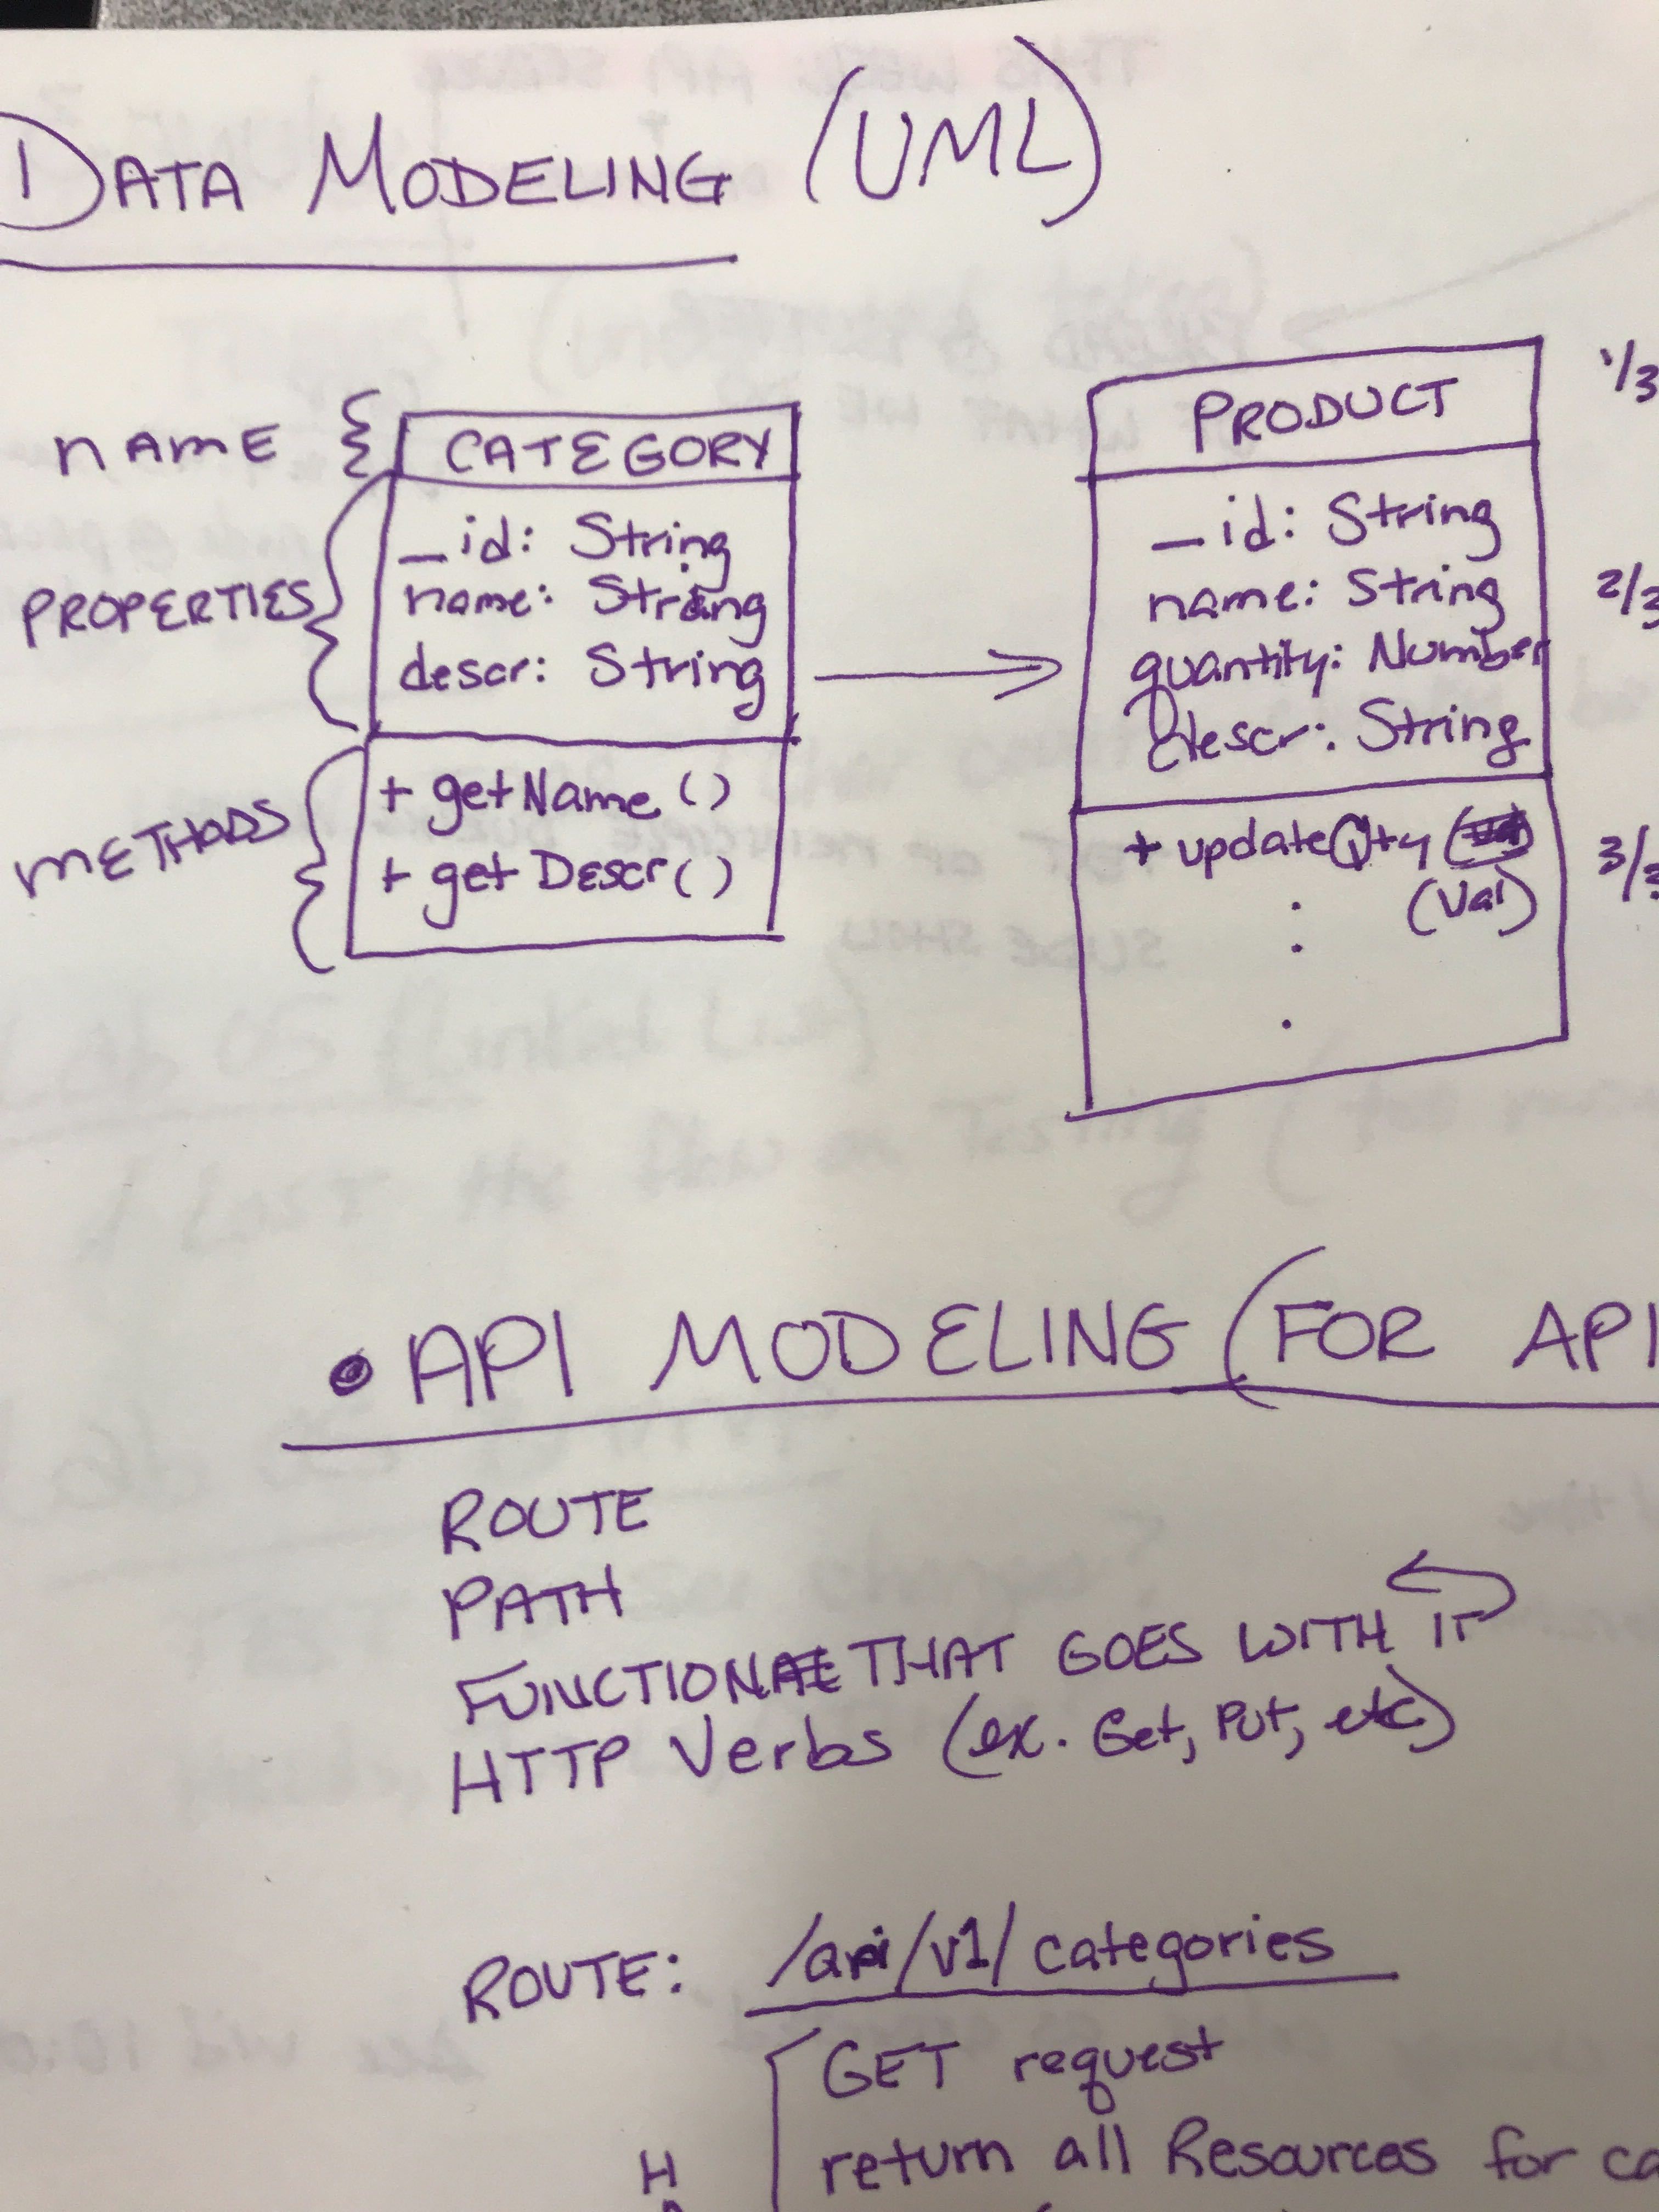 DATA MODELING (UML)
NAME { CATEGORY
PROPERTIES
_id: String
name: String
descr: String
METHODS
+ getName ()
+ getDescr ()
PRODUCT
1/3
_id: String
name: String
quantity: Number
descr: String
2/3
+ updateQty
(val)
3/3
• API MODELING (FOR API
ROUTE
PATH
FUNCTION THAT GOES WITH IT
HTTP Verbs (ex. Get, Put, etc)
ROUTE: /api/v1/categories
GET request
H return all Resources for ca